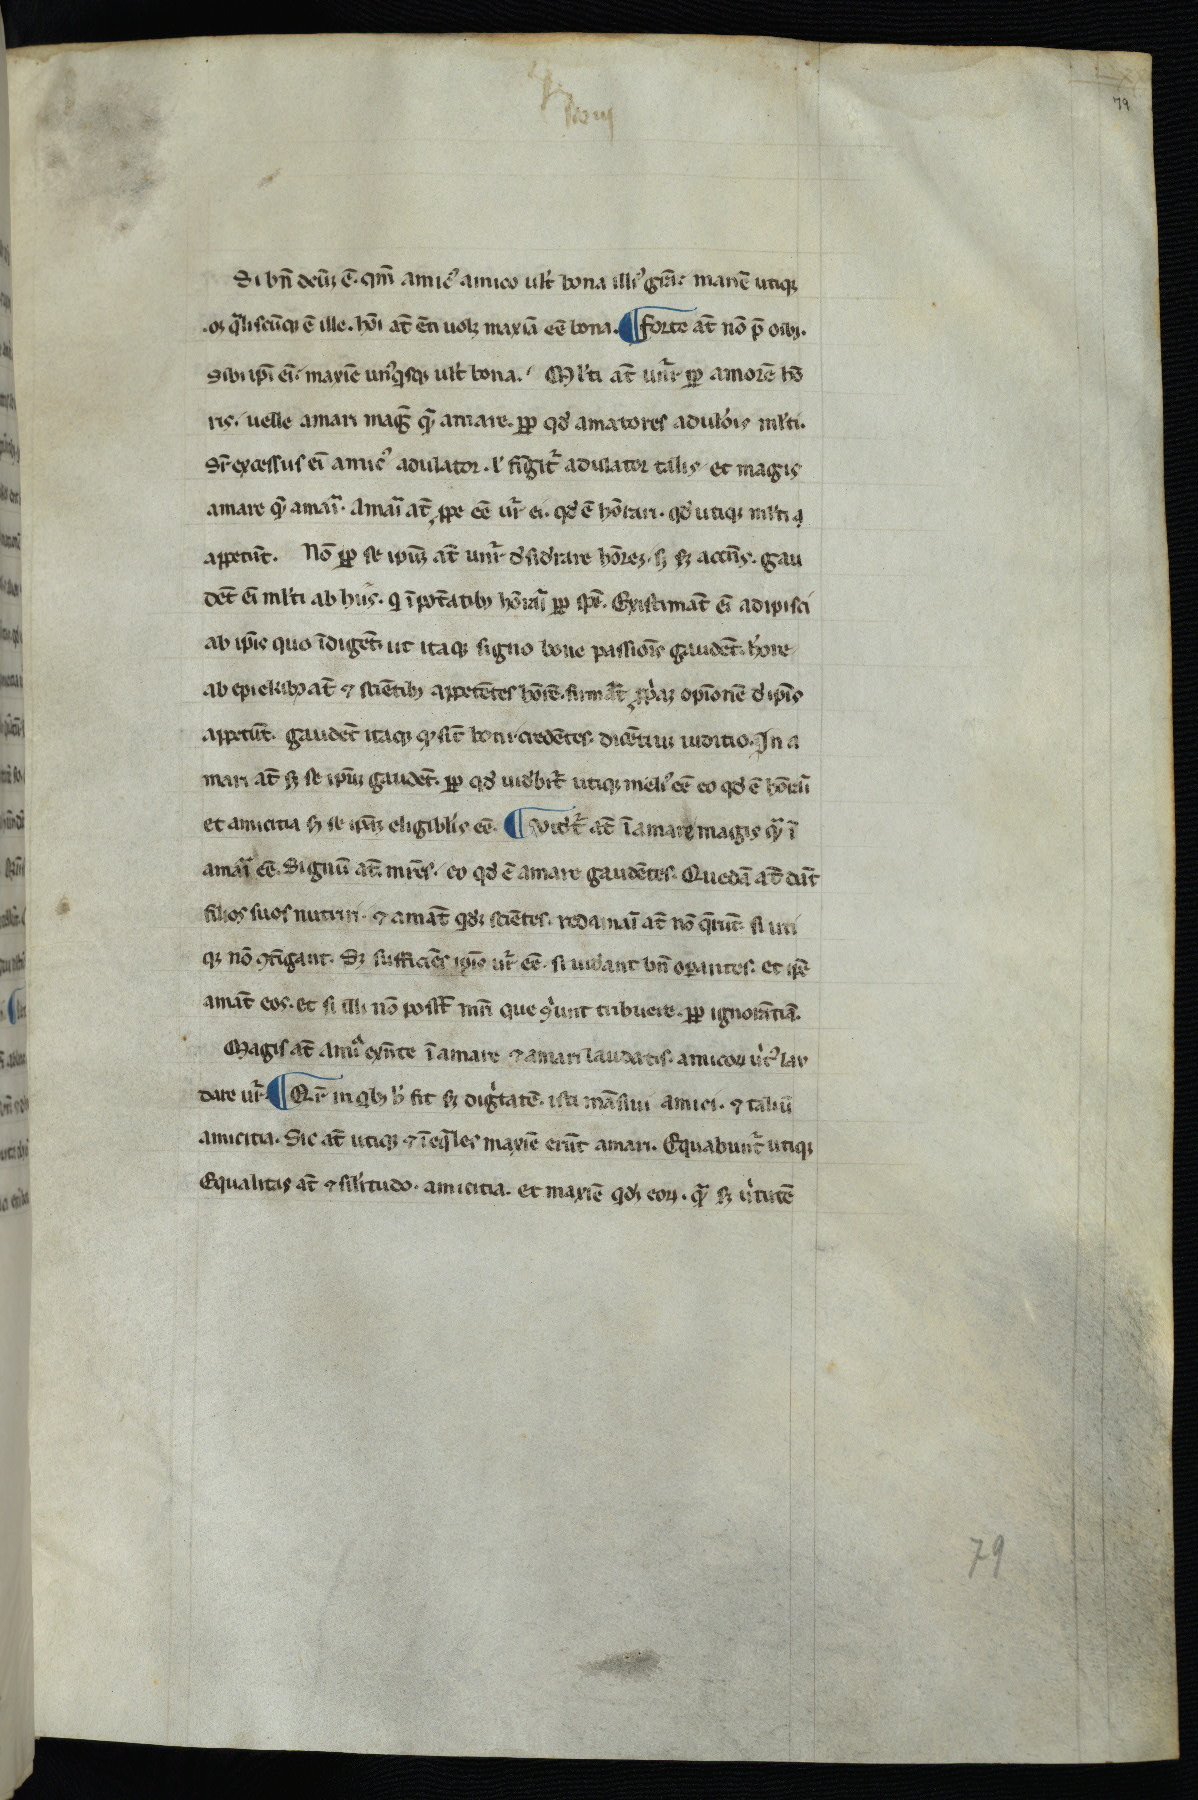 79
Si bn̄ dcūꝫ ē. qm̄ amicꝰ amico ult bona illiꝰ gr̄a. manē utiqꝫ
.oꝫ q̄liscūqꝫ ē ille. hōi at̄ ēti uolꝫ maxīa eē bona. ¶ Forte at̄ nō p̄ oībꝫ.
sibi ip̄i ei. maxīe unꝰq̄sqꝫ ult bona. Mlti at̄ unr̄ ꝓp amorē hō
ris. uelle amari maḡ q̄ amare. ꝓp qd amatores adulōis mlti.
Sr̄ excessus ei amicꝰ adulator. l fingitr̄ adulator talis et magis
amare q̄ amai. Amai at̄ ꝓpe eē ur̄ ei. qd ē hōrari. qd utiqꝫ mlti
appetūt. Nō ꝓp se ipm̄ at̄ unr̄ dsidrare hōrez. sꝫ accn̄s. gau
dēt ei mlti ab hiis. q ī potātibꝫ hōrai ꝓp spē. Existimāt ei adipisci
ab ip̄is quo īdigēt. ut itaqꝫ signo bone passiōis gaudēt. hōre
ab epieikibꝫ at̄ ⁊ sciētibꝫ appetētes hōrē. firmāt ꝓpaꝫ opīonē d ip̄is
appetūt. gaudēt itaqꝫ qꝫ sūt boni. credētes dicētiuꝫ iuditio. In a
mari at̄ sꝫ se ipm̄ gaudēt. ꝓp qd uidbit̄ utiqꝫ meliꝰ eē eo qd ē hōrai
et amicitia sꝫ se ip̄aꝫ eligiblis eē. ¶ Vidt̄ at̄ ī amare magis q̄ ī
amai eē. Signū at̄ mr̄es. eo qd ē amare gaudētes. Quedā at̄ dāt
filios suos nutriri. ⁊ amāt qdꝫ sciētes. redamai at̄ nō q̄rūt. si uti
qꝫ nō ꝯtīgant. Sꝫ sufficiēs ip̄is ur̄ eē. si uidant bn̄ opantes. et ip̄e
amāt eos. et si illi nō possīt mr̄i que ꝯuunt tribuere. ꝓp ignorātiā.
Magis at̄ amiᵃ exn̄te ī amare ⁊ amari laudatis. amicoꝝ utꝰ lau
dare ur̄. ¶ Qr̄ in qbꝫ h fit sꝫ dignitatē. isti māsiui amici. ⁊ taliū
amicitia. Sic at̄ utiqꝫ ⁊ īeq̄les maxīe erūt amari. Equabunt̄ utiqꝫ
Equalitas at̄ ⁊ silitudo. amicitia. et maxīe qdꝫ eoꝝ. q̄ sꝫ ututē
79